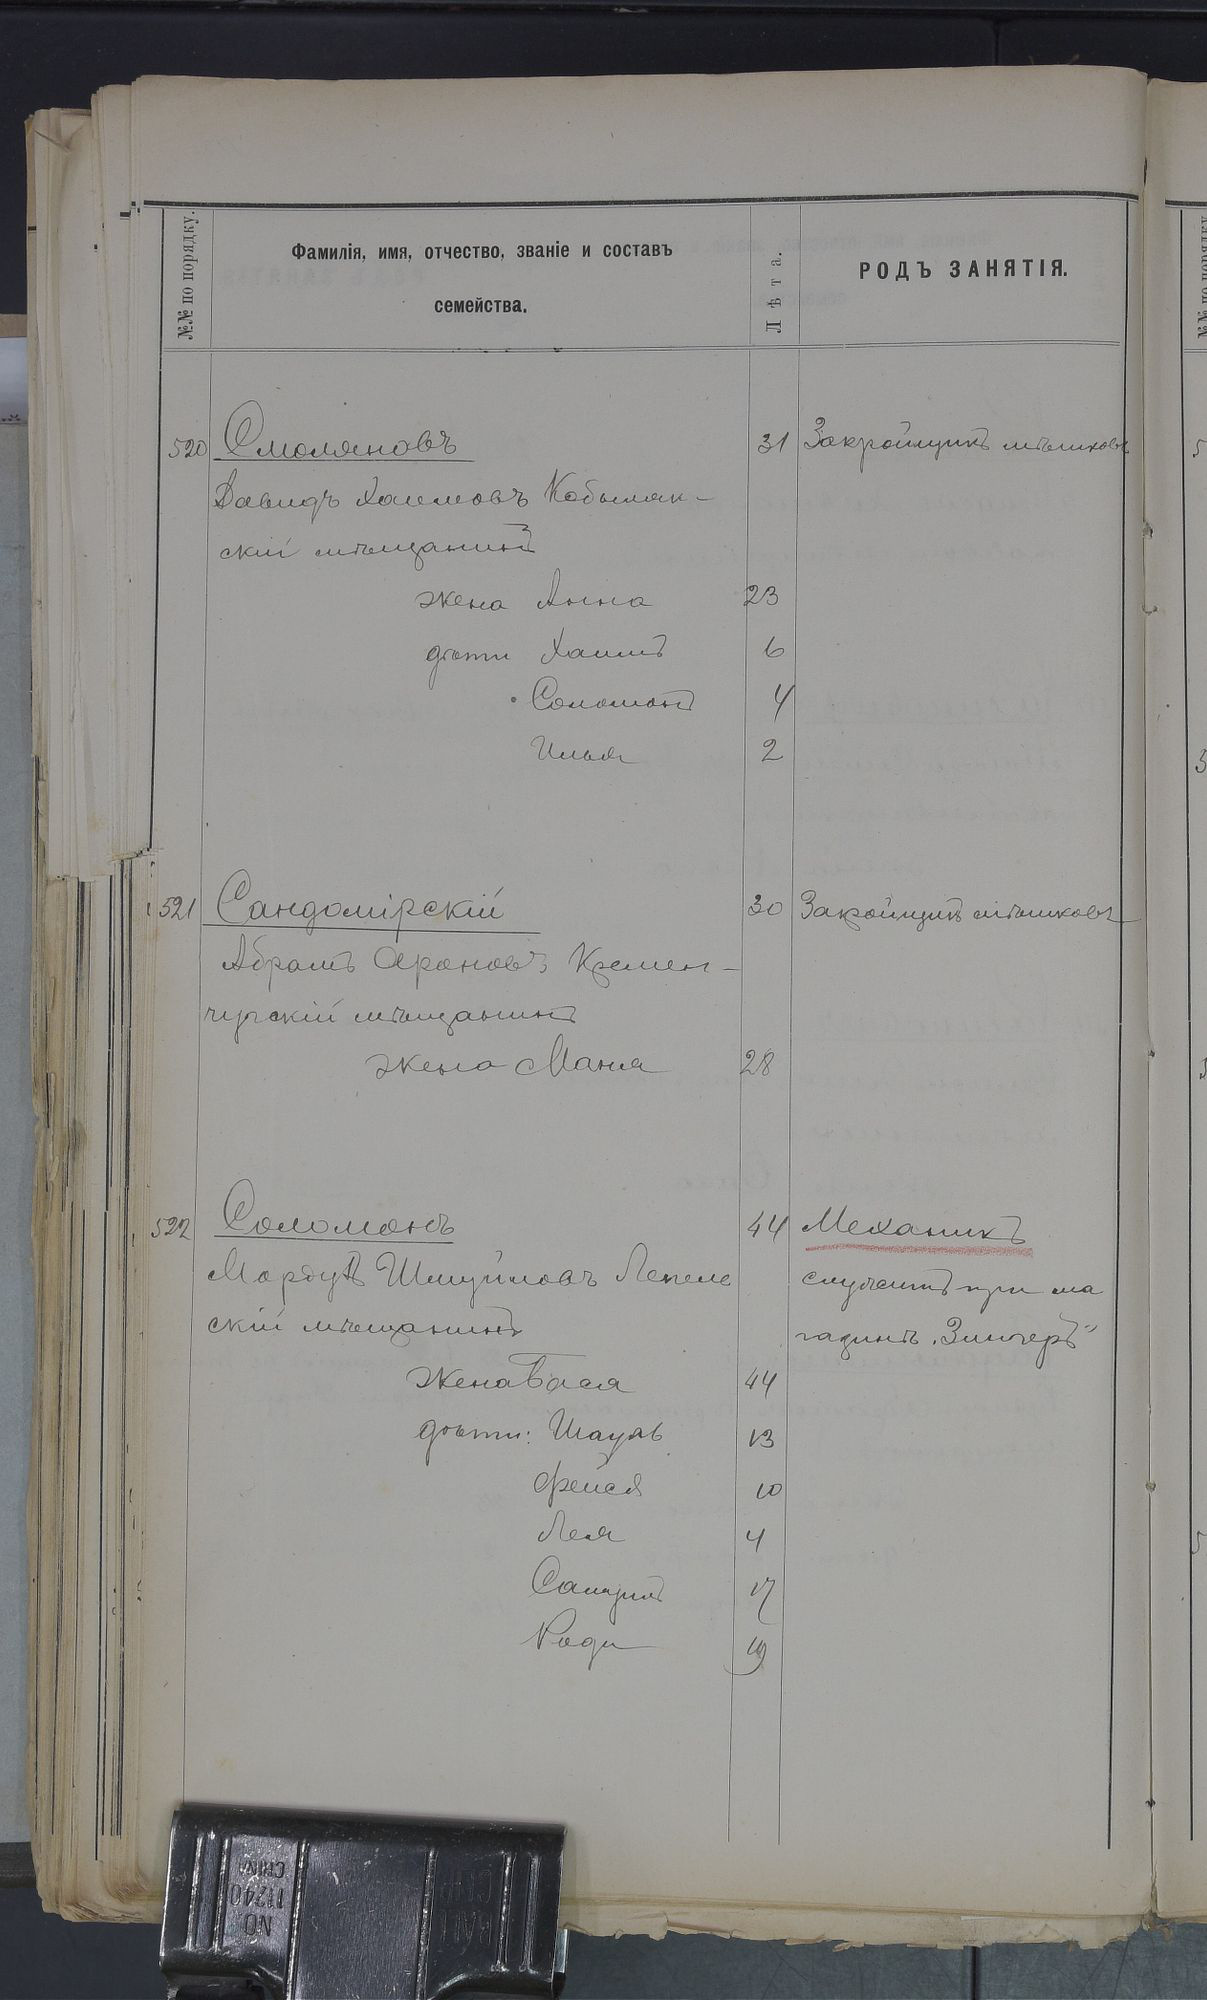 №№ по порядку.
Фамилія, имя, отчество, званіе и составъ
семейства.
Лѣта.
РОДЪ ЗАНЯТІЯ.
520 Смоляновъ 31 Закройщикъ мѣшковъ
Давидъ Хаимовъ Кобыляк-
скій мѣщанинъ
жена Анна 23
дѣти Хаимъ 6
Соломонъ 4
Илья 2
521 Сандомірскій 30 Закройщикъ мѣшковъ
Абрамъ Ароновъ Кремен-
чугскій мѣщанинъ
жена Маня 28
522 Соломонъ 44 Механикъ
Мордухъ Шмуйловъ Лепель
служитъ при ма
скій мѣщанинъ
газинѣ „Зингеръ"
жена Бася 44
дѣти: Шауль 13
Фейся 10
Лея 4
17
19
NO.
11240
CHINA